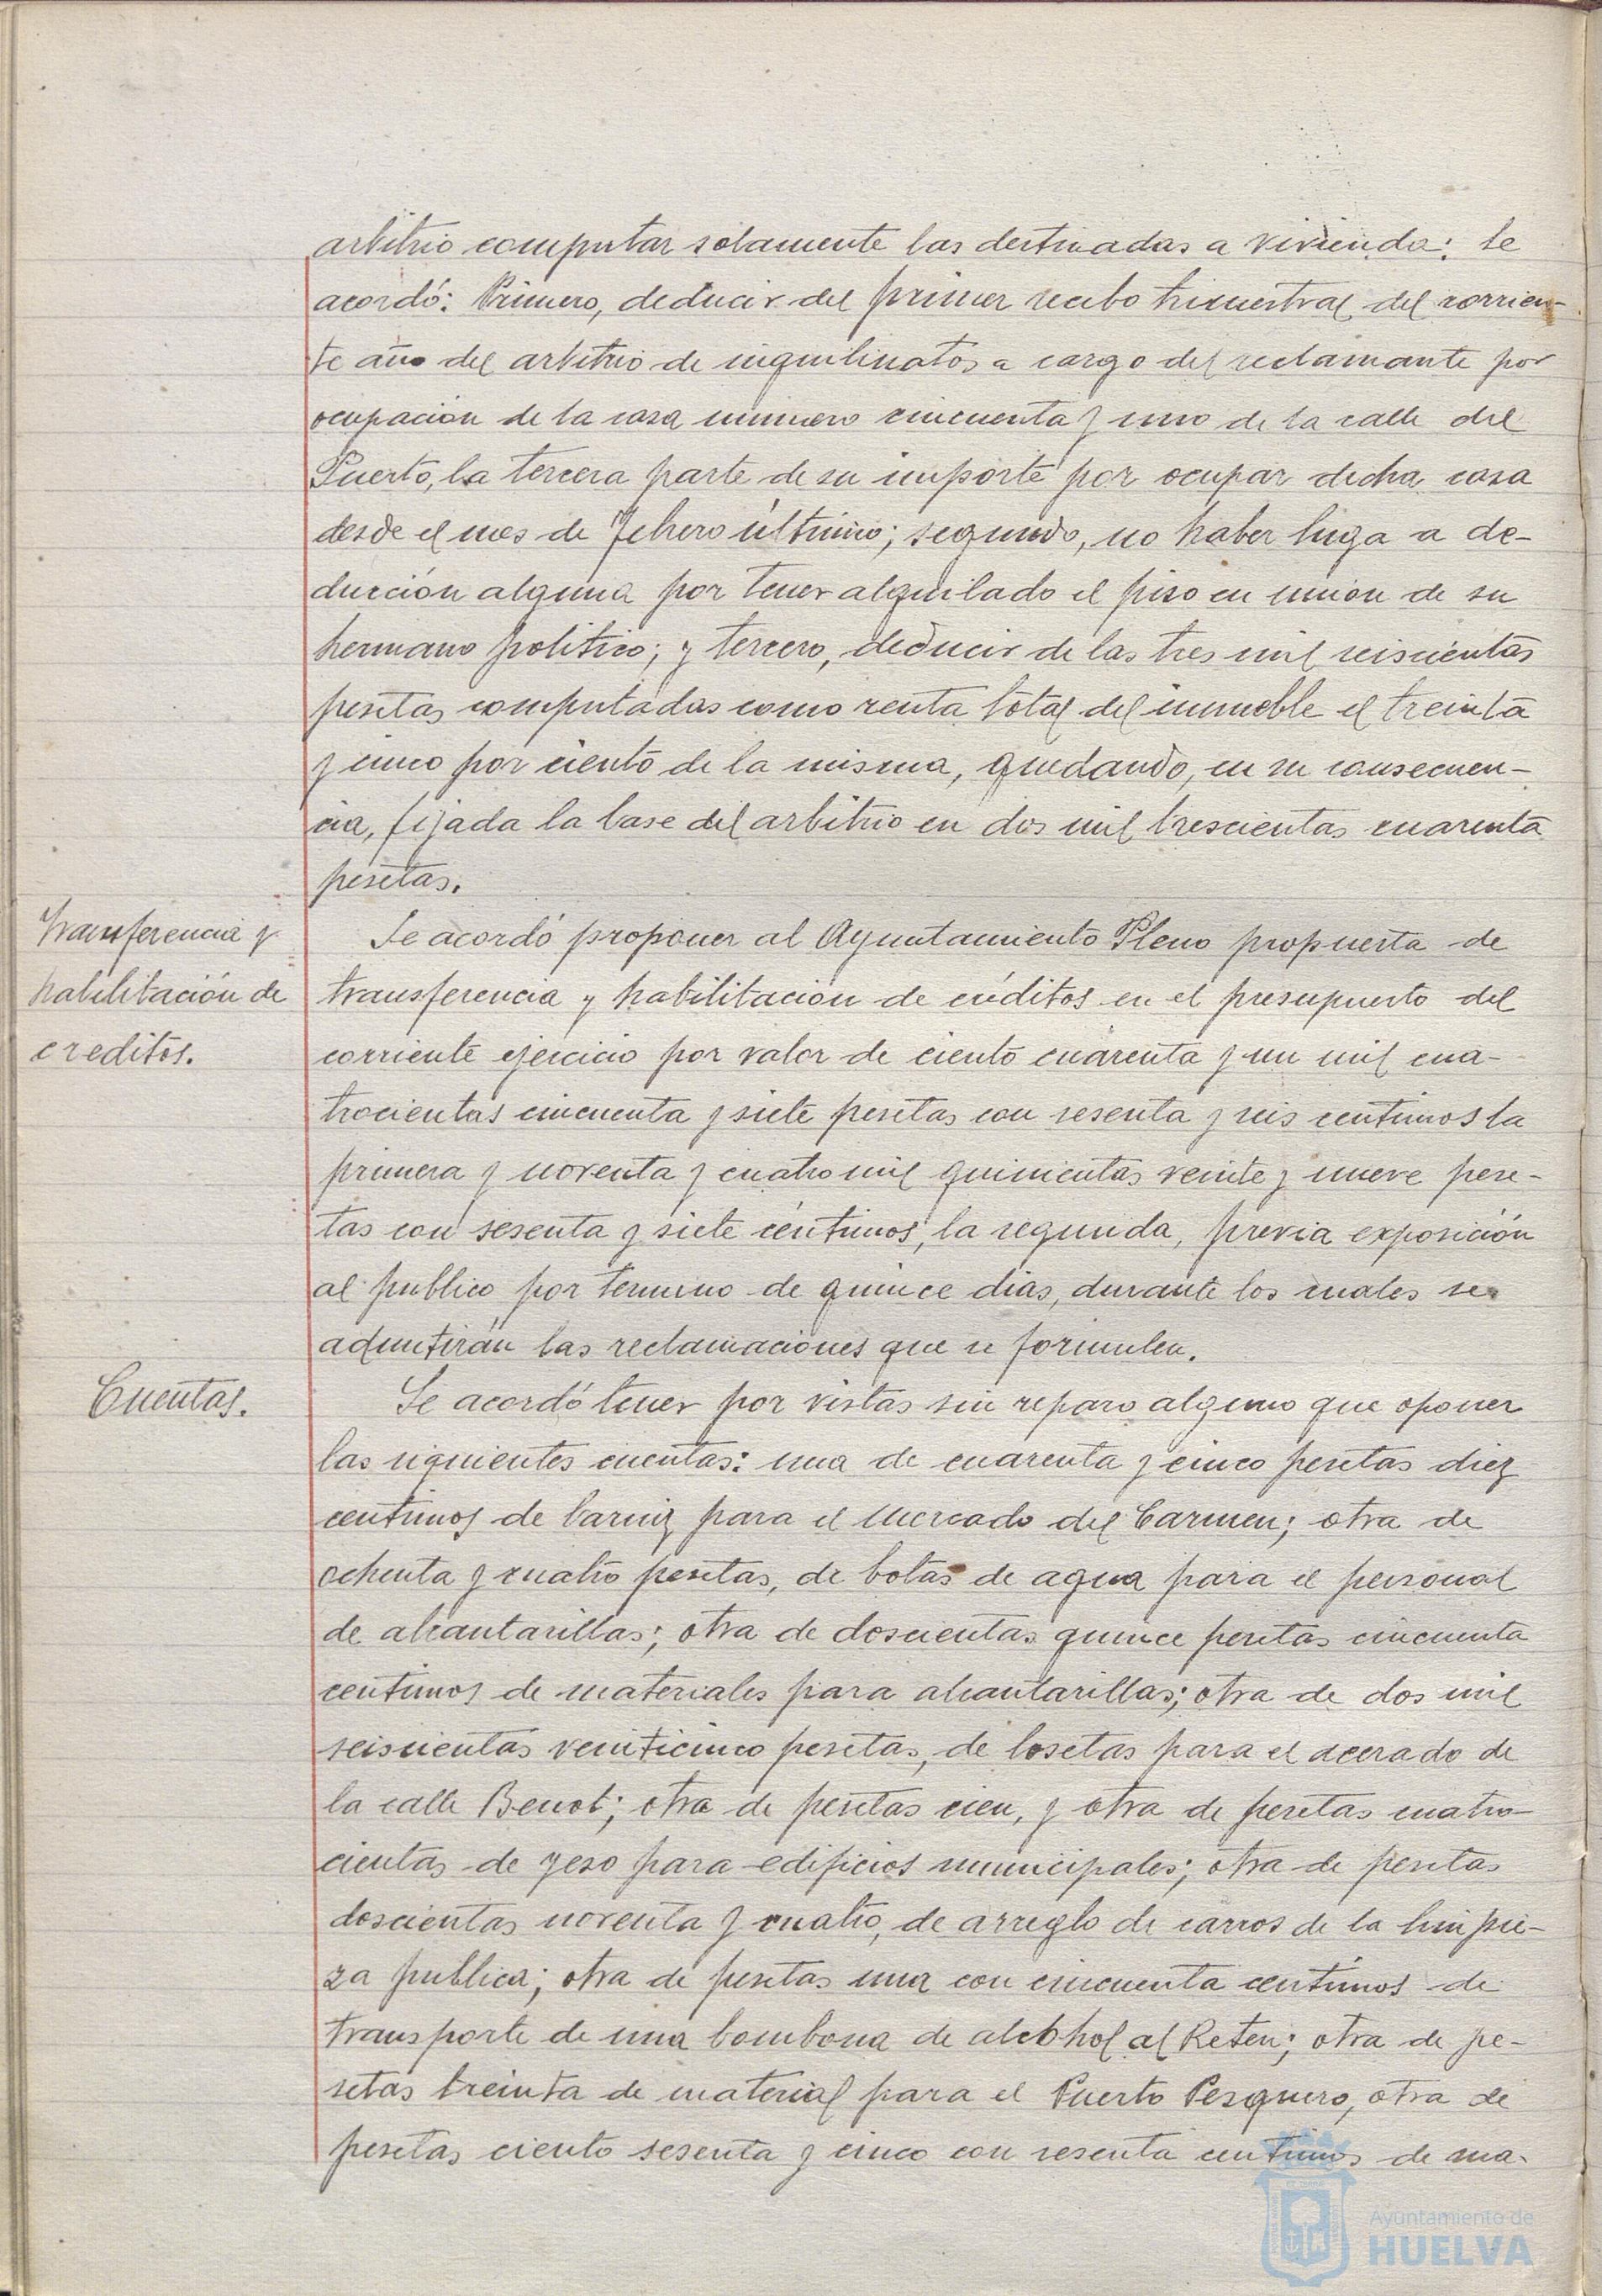 arbitrio computar solamente las destinadas a vivienda: se
acordó: Primero, deducir del primer recibo trimestral del corrien-
te año del arbitrio de inquilinatos a cargo del reclamante por
ocupación de la casa número cincuenta y uno de la calle del
Puerto, la tercera parte de su importe por ocupar dicha casa
desde el mes de Febrero último; segundo, no haber luga a de-
ducción alguna por tener alquilado el piso en union de su
hermano politico; y tercero, deducir de las tres mil seiscientas
pesetas computadas como renta total del inmueble el treinta
y cinco por ciento de la misma, quedando, en su consecuen-
cia, fijada la base del arbitrio en dos mil trescientas cuarenta
pesetas.
Transferencia y
habilitación de
creditos.
Se acordó proponer al Ayuntamiento Pleno propuesta de
transferencia y habilitación de créditos en el presupuesto del
corriente ejercicio por valor de ciento cuarenta y un mil cua-
trocientas cincuenta y siete pesetas con sesenta y seis centimos la
primera y noventa y cuatro mil quinientas veinte y nueve pese-
tas con sesenta y siete céntimos, la segunda, previa exposición
al publico por termino de quince dias, durante los cuales se
admitirán las reclamaciones que se formulen.
Cuentas.
Se acordó tener por vistas sin reparo alguno que oponer
las siguientes cuentas: una de cuarenta y cinco pesetas diez
centimos de barniz para el Mercado del Carmen; otra de
ochenta y cuatro pesetas, de botas de agua para el personal
de alcantarillas; otra de doscientas quince pesetas cincuenta
centimos de materiales para alcantarillas; otra de dos mil
seiscientas veinticinco pesetas, de losetas para el acerado de
la calle Benot; otra de pesetas cien, y otra de pesetas cuatro-
cientas de yeso para edificios municipales; otra de pesetas
doscientas noventa y cuatro, de arreglo de carros de la limpie-
za publica; otra de pesetas una con cincuenta centimos de
transporte de una bombona de alcohol al Reten; otra de pe-
setas treinta de material para el Puerto Pesquero, otra de
pesetas ciento sesenta y cinco con sesenta centimos de ma-
Ayuntamiento de
HUELVA